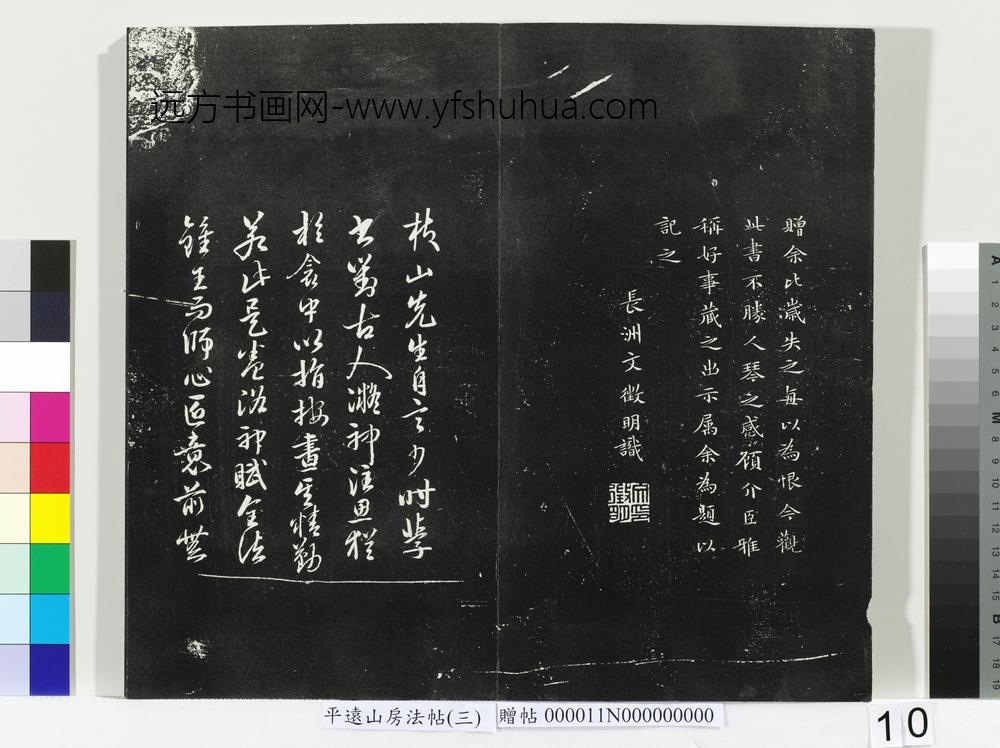 远方书画网-www.yfshuhua.com
贈余比歲失之每以為恨今觀
此書不勝人琴之感顧介臣雅
稱好事藏之出示属余為題以
記之
長洲文徵明識
枝山先生自言少時學
書對古人凝神注思
於衾中以指按畫其精勤
若此是卷洛神賦全法
鍾王而師心匠意前無
平遠山房法帖(三) 贈帖 000011N000000000
10